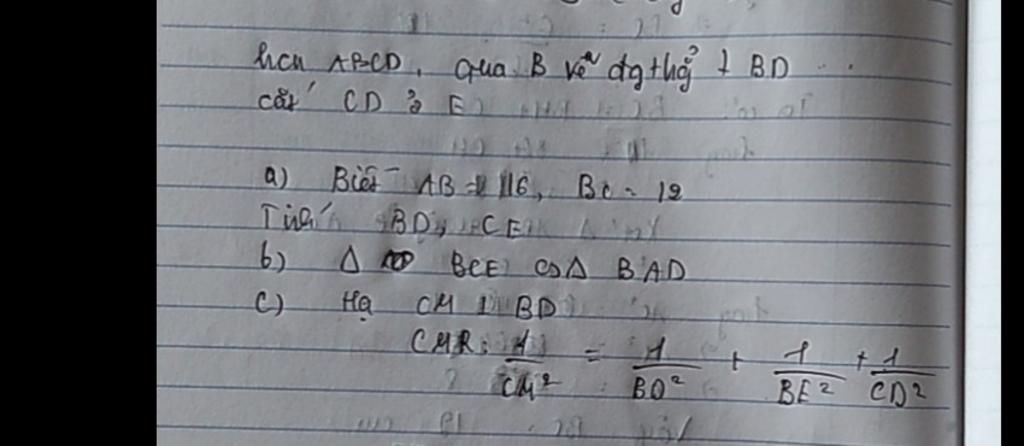 hcn ABCD. Qua B vẽ đg thg ⊥ BD
cắt CD ở E
a) Biết AB = 16, BC = 12
Tính BD, CE
b) Δ BCE ∽ Δ BAD
c) Hạ CM ⊥ BD
CMR: 1/CM² = 1/BD² + 1/BE² + 1/CD²